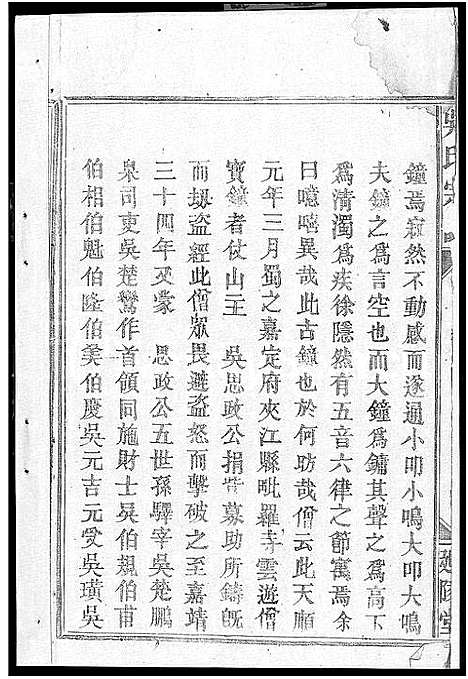 鐘焉寂然不動感而遂通小叩小鳴大叩大鳴
夫鐘之爲言空也而大鐘爲鏞其聲之爲高下
爲清濁爲疾徐隱然有五音六律之節寓焉余
曰噫嘻異哉此古鐘也於何昉哉僧云此天順
元年三月蜀之嘉定府夾江縣毗羅寺雲遊僧
寶鐘者仗山主 吳思政公捐貲募助所鑄旣
而刼盜經此僧眾畏避盜怒而擊破之至嘉靖
三十四年又蒙 思政公五世孫驛宰吳楚鵬
泉司吏吳楚鸞作首領同施財士吳伯規伯甫
伯相伯魁伯隆伯美伯慶吳元吉元受吳璜吳
吳氏宗
延陵堂